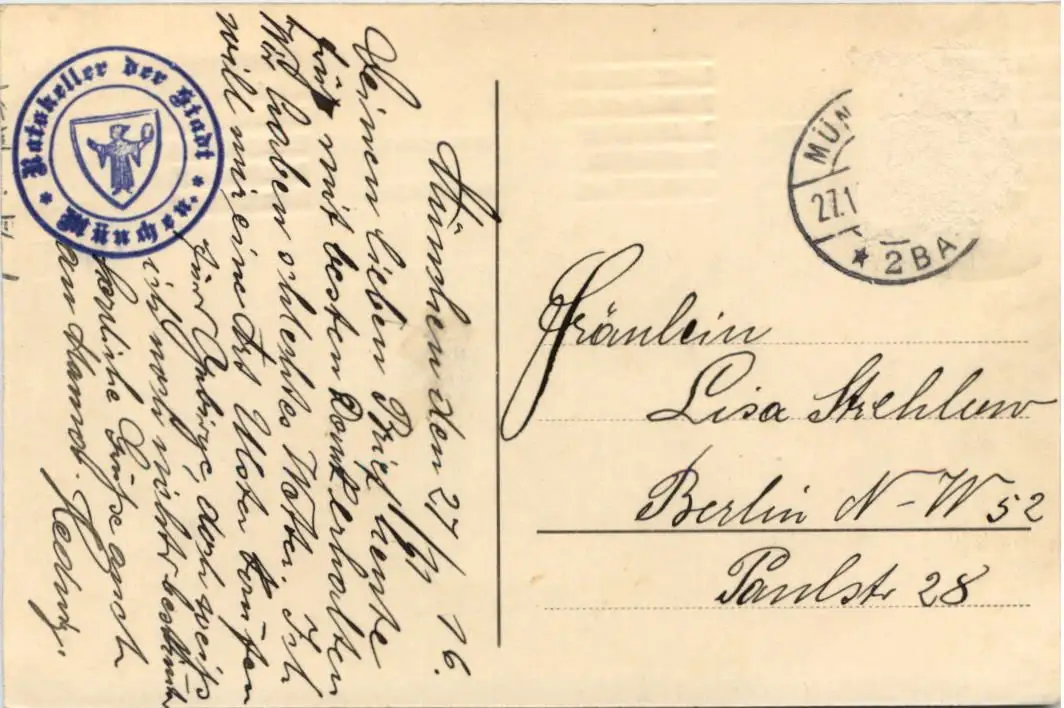 München den 27/VI 16.
Deinen lieben Brief heute
früh mit besten Dank erhalten
Wir haben schlechtes Wetter. Ich
will mir eine Art Ulster kaufen
fürs Gebirge, doch weiß
ich noch nicht bestimmt
Herzliche Grüße auch
an Hannol. Hedwig
Ratskeller der Stadt
München
MÜN
27.1
* 2 BA
Fräulein
Lisa Strehlow
Berlin N-W 52
Paulstr 28